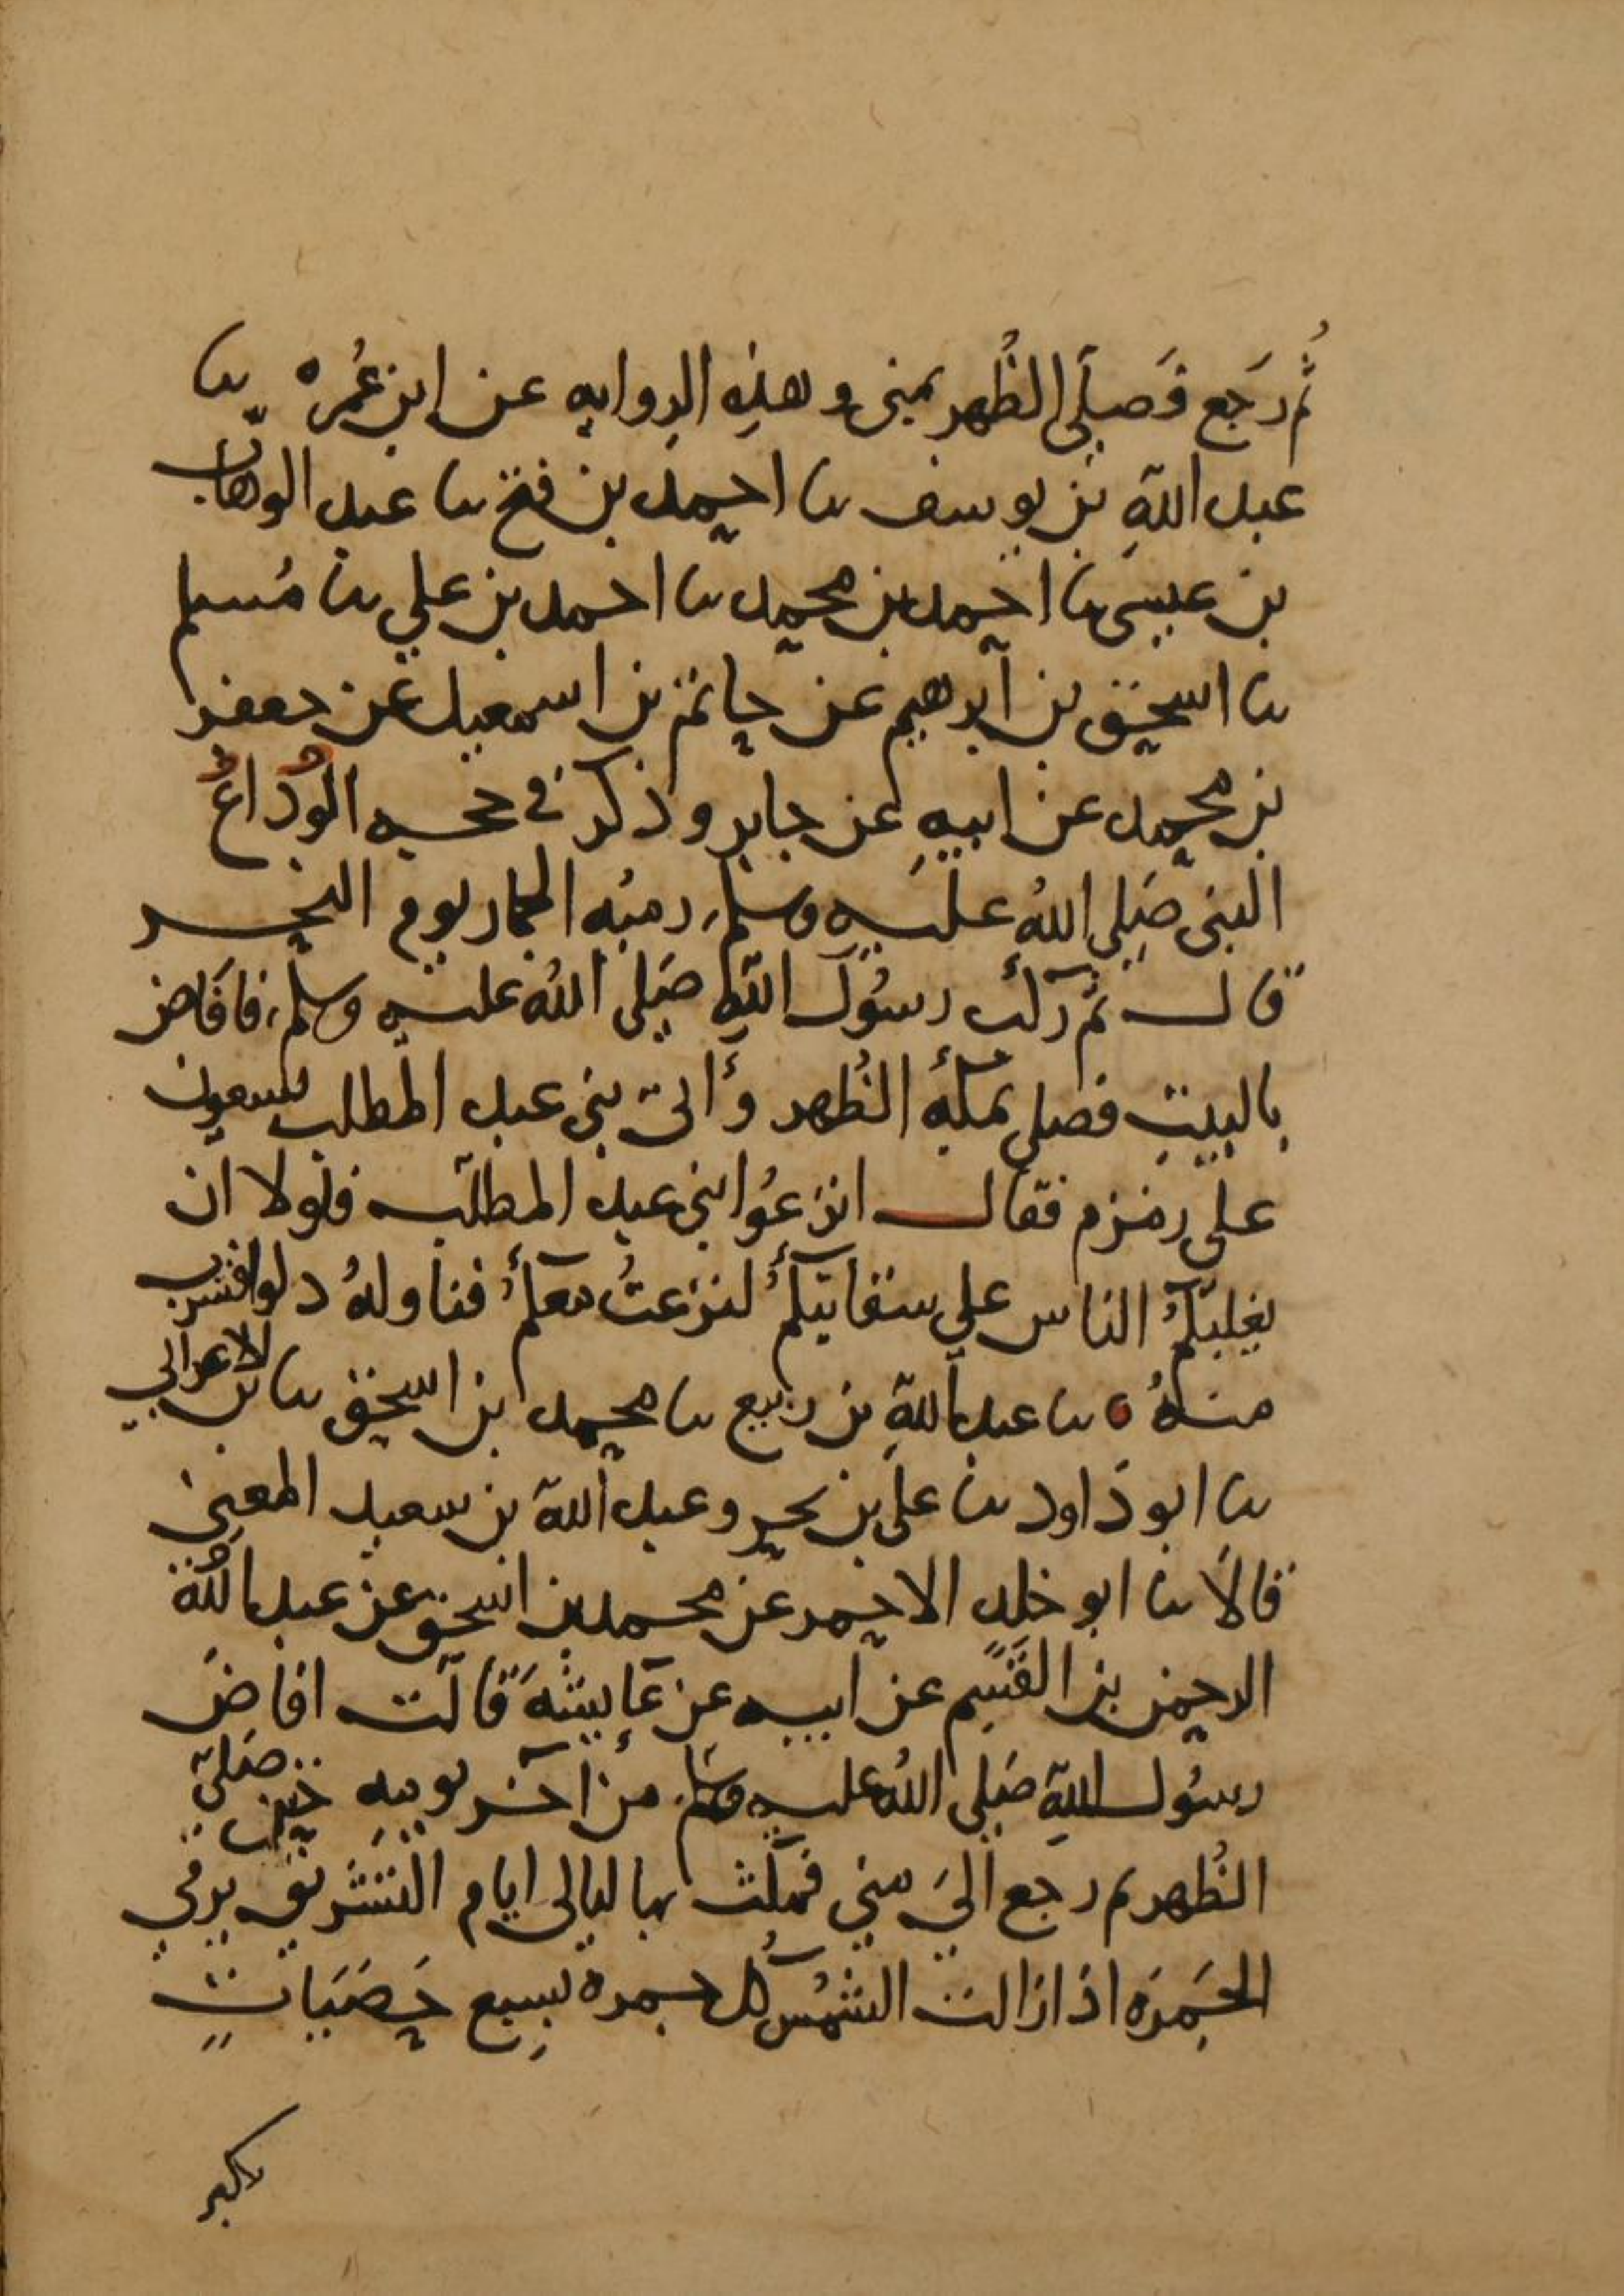 ثُم رَجع فَصلَى الظُهر بمنى وهذِه الروايه عن ابن عُمره ثنا
عبد اللهِ بن يوسف ثنا احمد بن فتح ثنا عبد الوهاب
بن عيسى ثنا احمد بن محمد ثنا احمد بن علي ثنا مُسلم
ثنا اسحق بن ابرهيم عن حاتم بن اسمعيل عن جعفر
بن محمد عن ابيهِ عن جابر وذكر في حجه الوَدَاعُ
النبى صَلى اللهُ عليه وسلم رميُه الجمار يوم النحر
قال ثم ركب رسُول اللهِ صَلى اللهُ عليه وسلم فافَاض
بالبيتِ فصلى بمكهُ الظُهر وأتى بني عبد المطلب يسعون
على زمزم فقال انزعُوا بني عبد المطلب فلولا ان
يغلبكمُ الناس على سقايتكمُ لنزعتُ معكمُ فناولهُ دلوا فشرب
منهُ ه ثنا عبد اللهِ بن ربيع ثنا محمد بن اسحق ثنا بن الاعرابي
ثنا ابو دَاود ثنا على بن بحر وعبد الله بن سعيد المعنِى
قالاَ ثنا ابو خلد الاحمر عن محمد بن اسحق عن عبد اللهُ
الرحمن بن القسِم عن ابيه عن عَايشهَ قالت افاضَ
رسُول اللهِ صَلى اللهُ عليه وسلم من آخر يومِهِ حين صَلى
الظُهر ثم رجع الىَ منِي فمكث بها ليالى ايام التشريق يرمي
الجَمرَه اذا زالت الشمسُ كل جمره بسبعِ حَصَيَاتٍ
يكبر